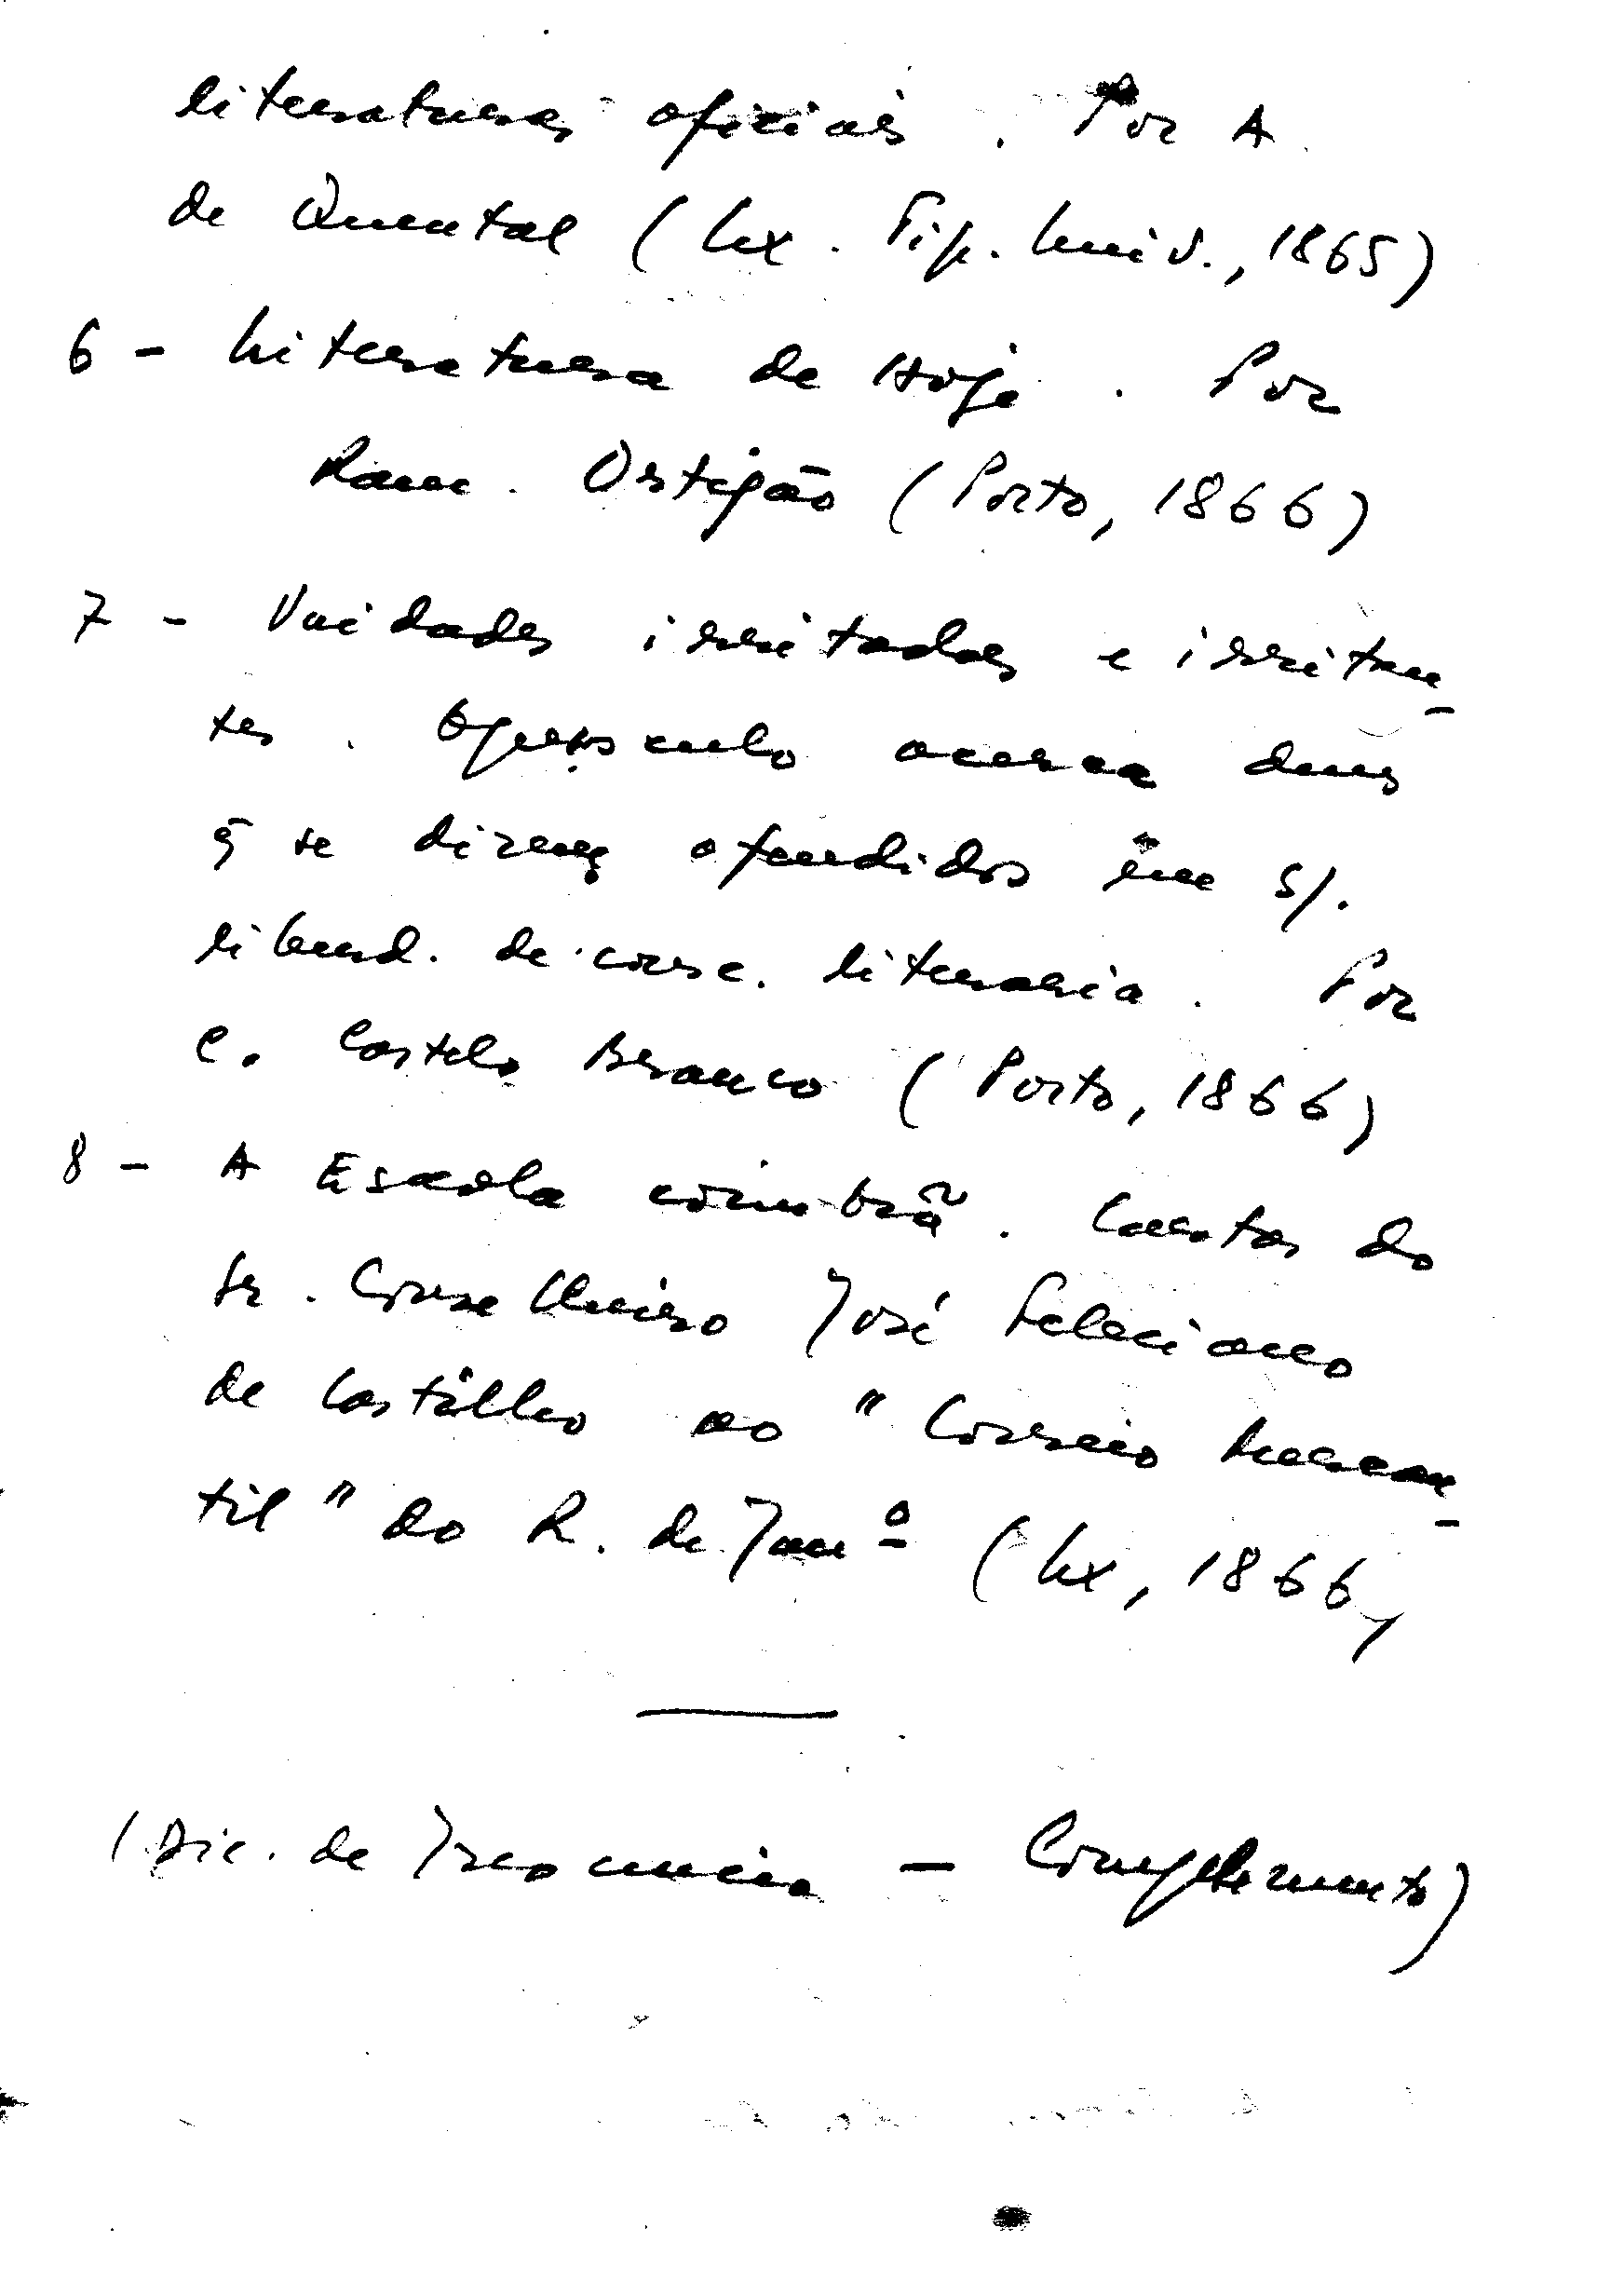 literaturas oficiais. Por A.
de Quental (Lx. Tip. Univ., 1865)
6 - Literatura de Hoje. Por
Ram. Ortigão (Porto, 1866)
7 - Vaidades irritadas e irritan-
tes. Opusculo acerca duns
q̃ se dizem ofendidos em s/.
liberd. de consc. literaria. Por
C. Castelo Branco (Porto, 1866)
8 - A Escola coimbrã. Cartas do
Sr. Conselheiro José Feliciano
de Castilho ao "Correio Mercan-
til" do R. de Janº (Lx, 1866)
(Dic. de Inocencio - Complemento)